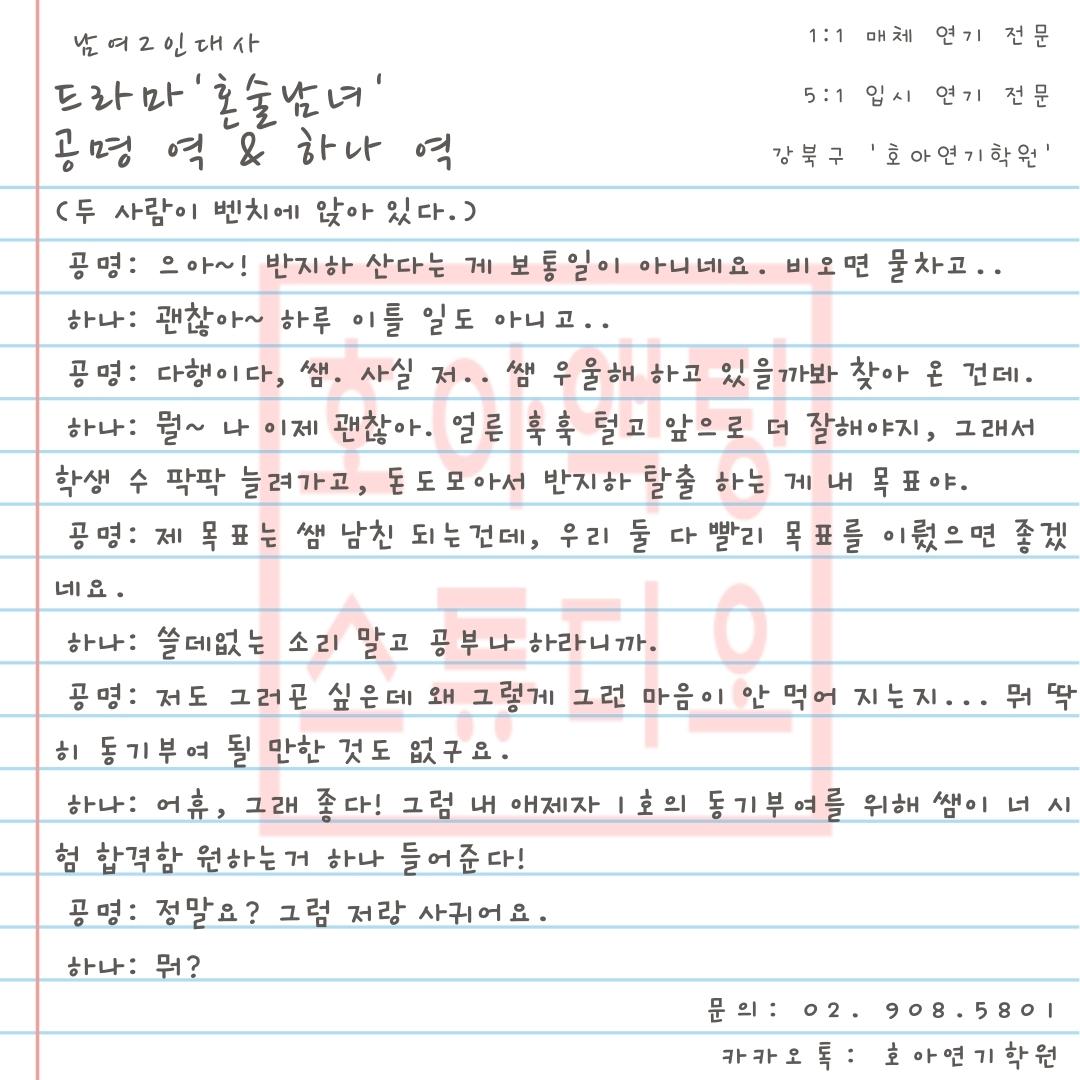 남여2인대사
1:1 매체 연기 전문
드라마'혼술남녀'
5:1 입시 연기 전문
공명 역 & 하나 역
강북구 '호아연기학원'
(두 사람이 벤치에 앉아 있다.)
공명: 으아~! 반지하 산다는 게 보통일이 아니네요. 비오면 물차고..
하나: 괜찮아~ 하루 이틀 일도 아니고..
공명: 다행이다, 쌤. 사실 저.. 쌤 우울해 하고 있을까봐 찾아 온 건데.
하나: 뭘~ 나 이제 괜찮아. 얼른 훅훅 털고 앞으로 더 잘해야지, 그래서
학생 수 팍팍 늘려가고, 돈도모아서 반지하 탈출 하는 게 내 목표야.
공명: 제 목표는 쌤 남친 되는건데, 우리 둘 다 빨리 목표를 이뤘으면 좋겠
네요.
하나: 쓸데없는 소리 말고 공부나 하라니까.
공명: 저도 그러곤 싶은데 왜 그렇게 그런 마음이 안 먹어 지는지... 뭐 딱
히 동기부여 될 만한 것도 없구요.
하나: 어휴, 그래 좋다! 그럼 내 애제자 1호의 동기부여를 위해 쌤이 너 시
험 합격함 원하는거 하나 들어준다!
공명: 정말요? 그럼 저랑 사귀어요.
하나: 뭐?
문의: 02. 908.5801
카카오톡: 호아연기학원
호아액팅
스튜디오